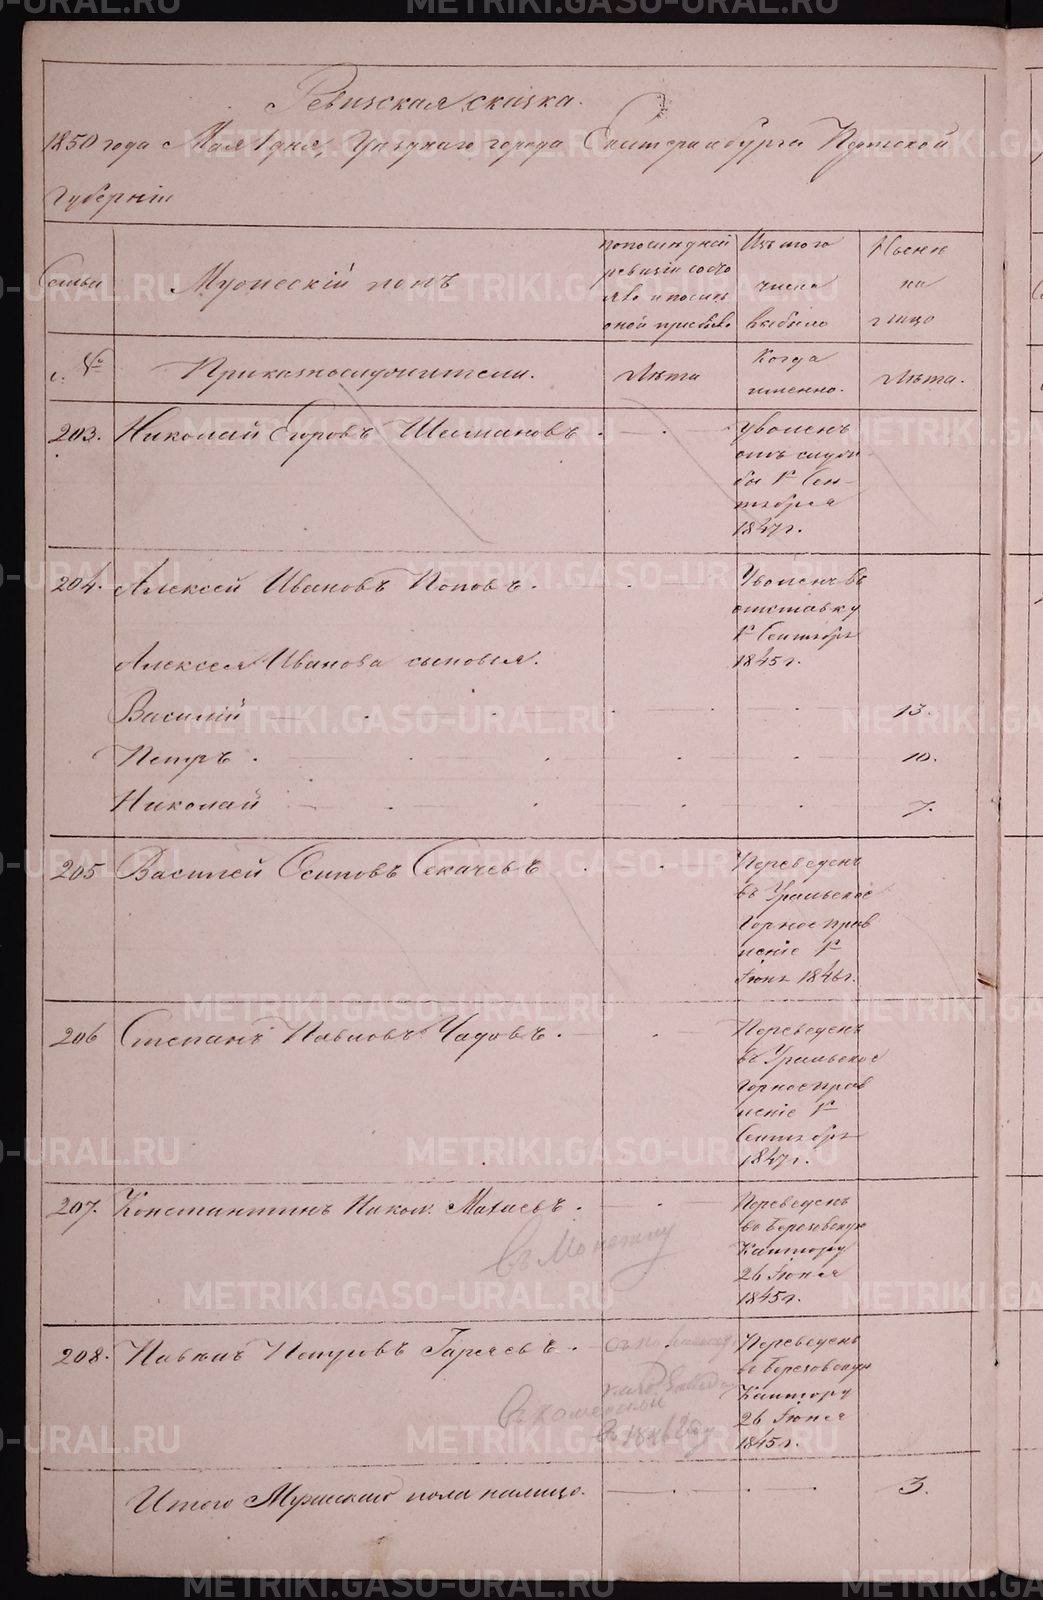 Ревизская сказка.
1850 года Мая 1 дня, Уезднаго города Екатеринбурга Пермской
Губерніи
Семьи
Мужескій полъ
по последней
ревизіи состо
яло и после
оной прибыло
Изъ того
числа
выбыло
Ныне
на
лицо
№
Приказнослужители.
Лѣта
Когда
именно.
Лѣта.
203. Николай Егоровъ Шимановъ.
Уволенъ
отъ служ
бы 1го Сен-
тября
1847 г.
204. Алексей Ивановъ Поповъ.
Уволенъ въ
отставку
1го Сентября
1845 г.
Алексея Иванова сыновья.
Василій 13.
Петръ 10.
Николай 7.
205 Василей Осиповъ Секачевъ
Переведенъ
въ Уральское
Горное прав
леніе 1го
Іюня 1846 г.
206 Степанъ Павловъ Чадовъ.
Переведенъ
въ Уральское
горное прав
леніе 1го
Сентября
1847 г.
207. Константинъ Никол.
Переведенъ
въ Березовскую
Кантору
26 Іюня
1845 г.
въ Монетку
208. Павелъ Петровъ Гаряевъ.
Переведенъ
въ Березовскую
Кантору
26 Іюня
1845 г.
Итого Мужескаго пола налицо. 3.
METRIKI.GASO-URAL.RU